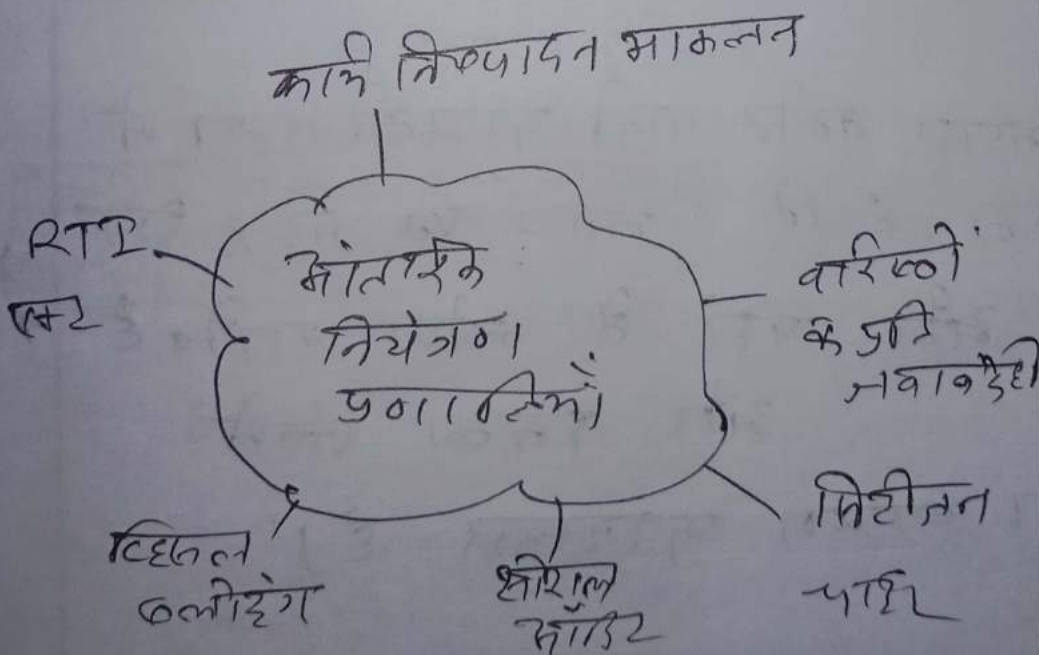 कार्य निष्पादन आकलन
RTI
एक्ट
आंतरिक
नियंत्रण
प्रणालियाँ
वरिष्ठों
के प्रति
जवाबदेही
सिटीजन
चार्टर
सोशल
ऑडिट
व्हिसल
ब्लोइंग